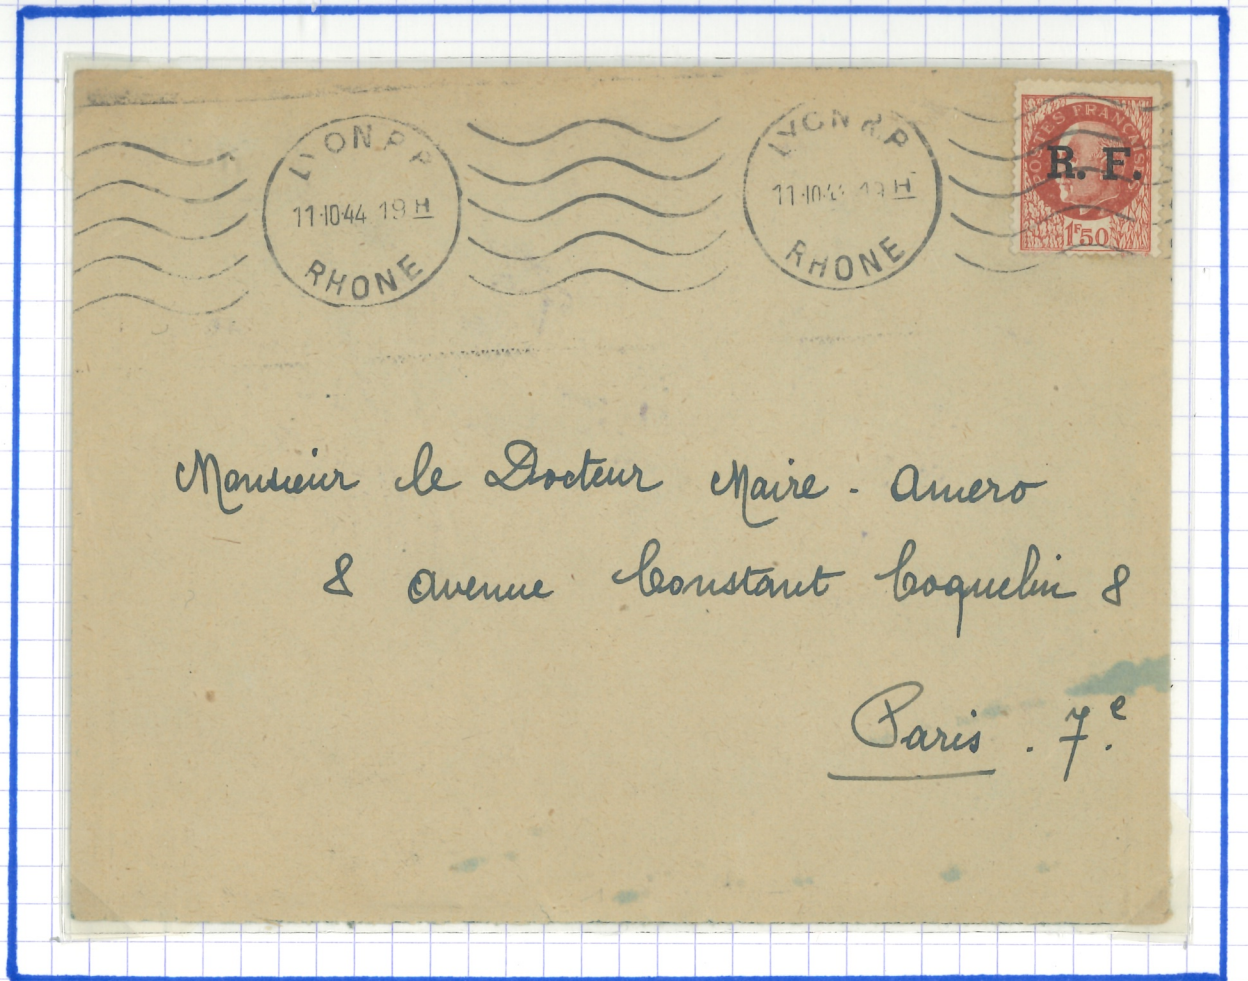 LYON R.P
11·10·44 19 H
RHONE
LYON R.P
11·10·44 19 H
RHONE
POSTES FRANÇAISES
R. F.
1F50
Monsieur le Docteur Maire - Amero
8 avenue Constant Coquelin 8
Paris . 7.e